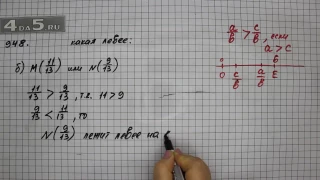 4DA5.RU
948. какая левее.
б) M(11/13) или N(9/13)
11/13 > 9/13, т.к. 11 > 9
9/13 < 11/13, то
N(9/13) лежит левее на
a/b > c/b, если
a > c
0 c/b a/b E